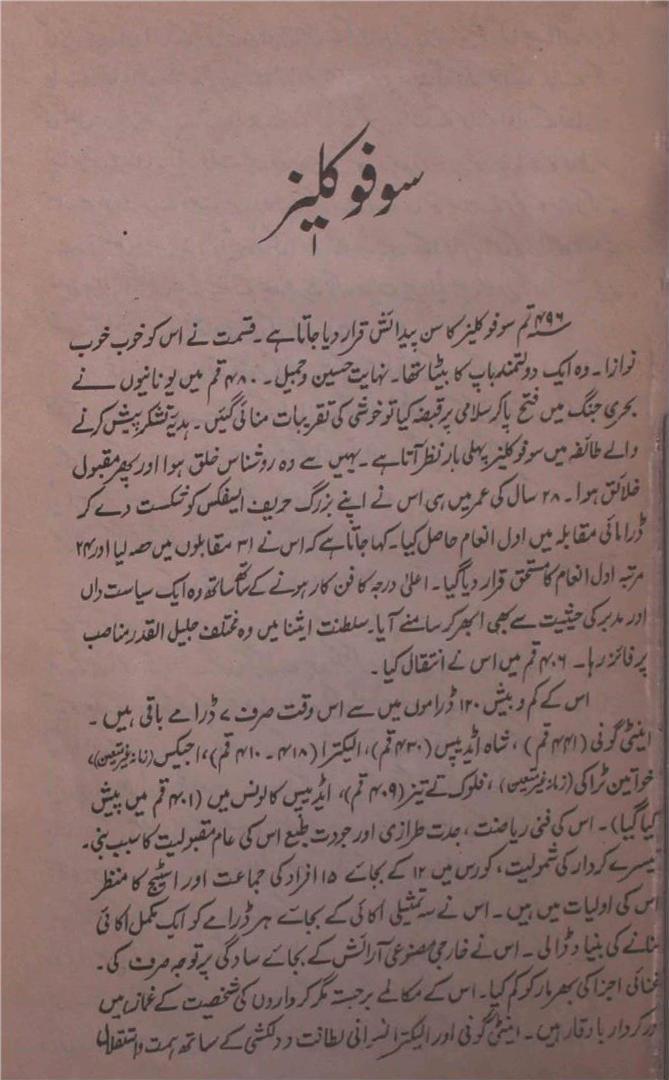 سوفوکلیز
۴۹۶ قم سوفوکلیز کا سن پیدائش قرار دیا جاتا ہے۔ قسمت نے اس کو خوب خوب
نوازا۔ وہ ایک دولتمند باپ کا بیٹا تھا۔ نہایت حسین و جمیل۔ ۴۸۰ قم میں یونانیوں نے
بحری جنگ میں فتح پاکر سلامی پر قبضہ کیا تو خوشی کی تقریبات منائی گئیں۔ ہدیۂ تشکر پیش کرنے
والے طائفہ میں سوفوکلیز پہلی بار نظر آتا ہے۔ یہیں سے وہ روشناس خلق ہوا اور پھر مقبول
خلائق ہوا۔ ۲۸ سال کی عمر میں ہی اس نے اپنے بزرگ حریف ایسفکس کو شکست دے کر
ڈرامائی مقابلہ میں اول انعام حاصل کیا۔ کہا جاتا ہے کہ اس نے ۳۱ مقابلوں میں حصہ لیا اور ۲۴
مرتبہ اول انعام کا مستحق قرار دیا گیا۔ اعلیٰ درجہ کا فن کار ہونے کے ساتھ ساتھ وہ ایک سیاست داں
اور مدبر کی حیثیت سے بھی ابھر کر سامنے آیا۔ سلطنت ایثنا میں وہ مختلف جلیل القدر مناصب
پر فائز رہا۔ ۴۰۶ قم میں اس نے انتقال کیا۔
اس کے کم و بیش ۱۲۰ ڈراموں میں سے اس وقت صرف ۷ ڈرامے باقی ہیں۔
اینٹی گونی (۴۴۱ قم)، شاہ ایڈیپس (۴۳۰ قم)، الیکٹرا (۴۱۸ - ۴۱۰ قم)، اجیکس (زمانہ غیر متعین)،
خواتین ٹراکی (زمانہ غیر متعین)، فلوک تے تیز (۴۰۹ قم)، ایڈیپس کالونس میں (۴۰۱ قم میں پیش
کیا گیا)۔ اس کی فنی ریاضت، جدت طرازی اور جودت طبع اس کی عام مقبولیت کا سبب بنی۔
تیسرے کردار کی شمولیت، کورس میں ۱۲ کے بجائے ۱۵ افراد کی جماعت اور اسٹیج کا منظر
اس کی اولیات میں ہیں۔ اس نے سہ تمثیلی اکائی کے بجائے ہر ڈرامے کو ایک مکمل اکائی
بنانے کی بنیاد ڈالی۔ اس نے خارجی مصنوعی آرائش کے بجائے سادگی پر توجہ صرف کی۔
غنائی اجزا کی بھرمار کو کم کیا۔ اس کے مکالمے برجستہ مگر کرداروں کی شخصیت کے غماز ہیں
اور کردار باوقار ہیں۔ اینٹی گونی اور الیکٹرا نسوانی لطافت و دلکشی کے ساتھ ہمت و استقلال